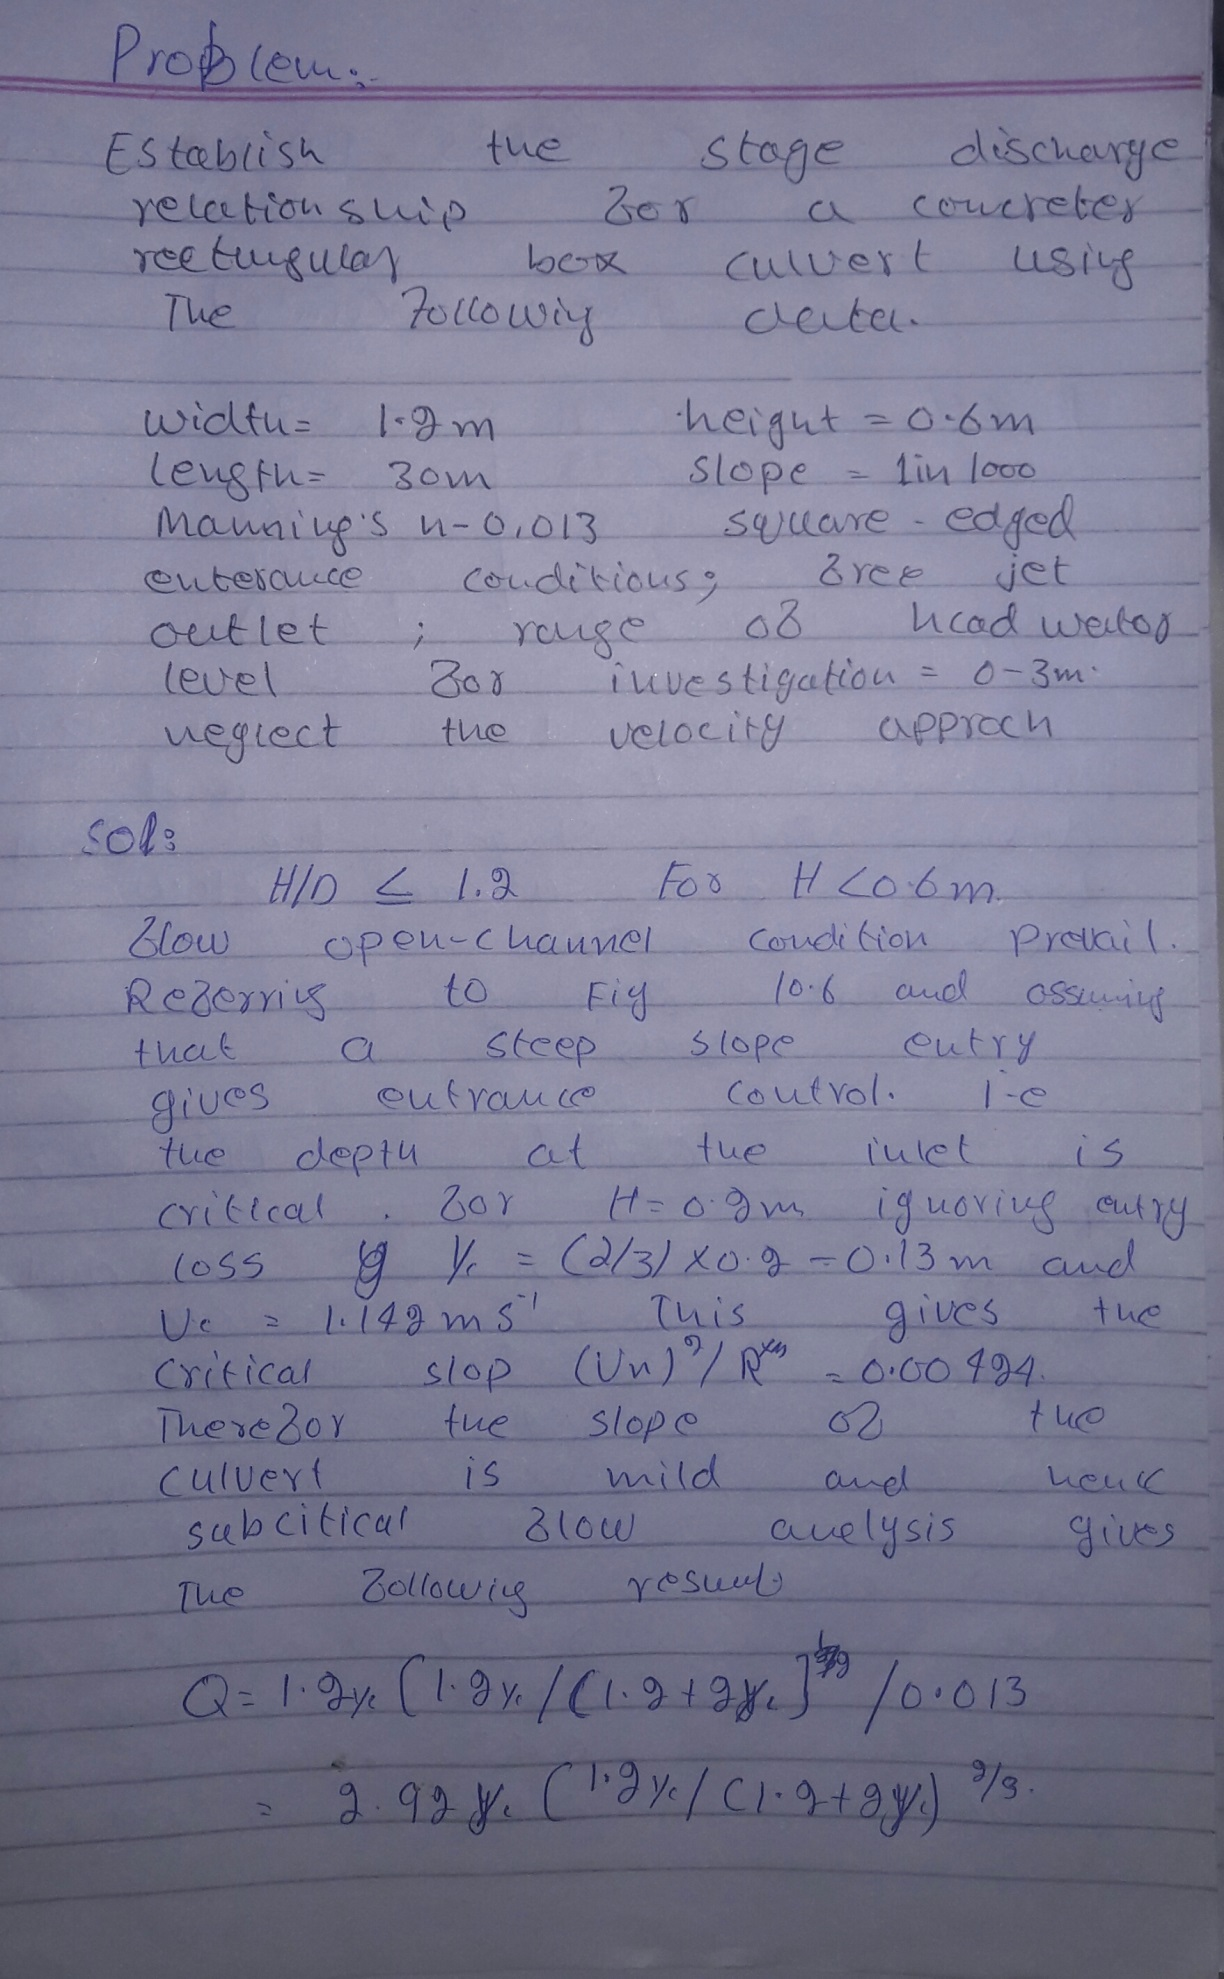 Problem:-
Establish the stage discharge
relationship for a concreter
rectungular box culvert using
The Following data.
width= 1.2m height = 0.6m
length= 30m slope = 1in 1000
Manning's n-0.013 square-edged
enterance conditions; free jet
outlet ; range of head water
level for investigation = 0-3m.
neglect the velocity approch
Sol:
H/D ≤ 1.2 For H <0.6m.
flow open-channel condition prevail.
Referring to Fig 10.6 and assuming
that a steep slope entry
gives entrance control. i-e
the depth at the inlet is
critical . for H=0.2m ignoring entry
loss yc = (2/3) x0.2 =0.13m and
Vc = 1.142 ms⁻¹ This gives the
critical slop (Vn)²/R = 0.00424.
Therefor the slope of the
culvert is mild and henc
subcitical flow anelysis gives
The following result
Q= 1.2yc (1.2yc/(1.2+2yc] /0.013
= 2.92 yc (1.2yc/(1.2+2yc) 2/3.